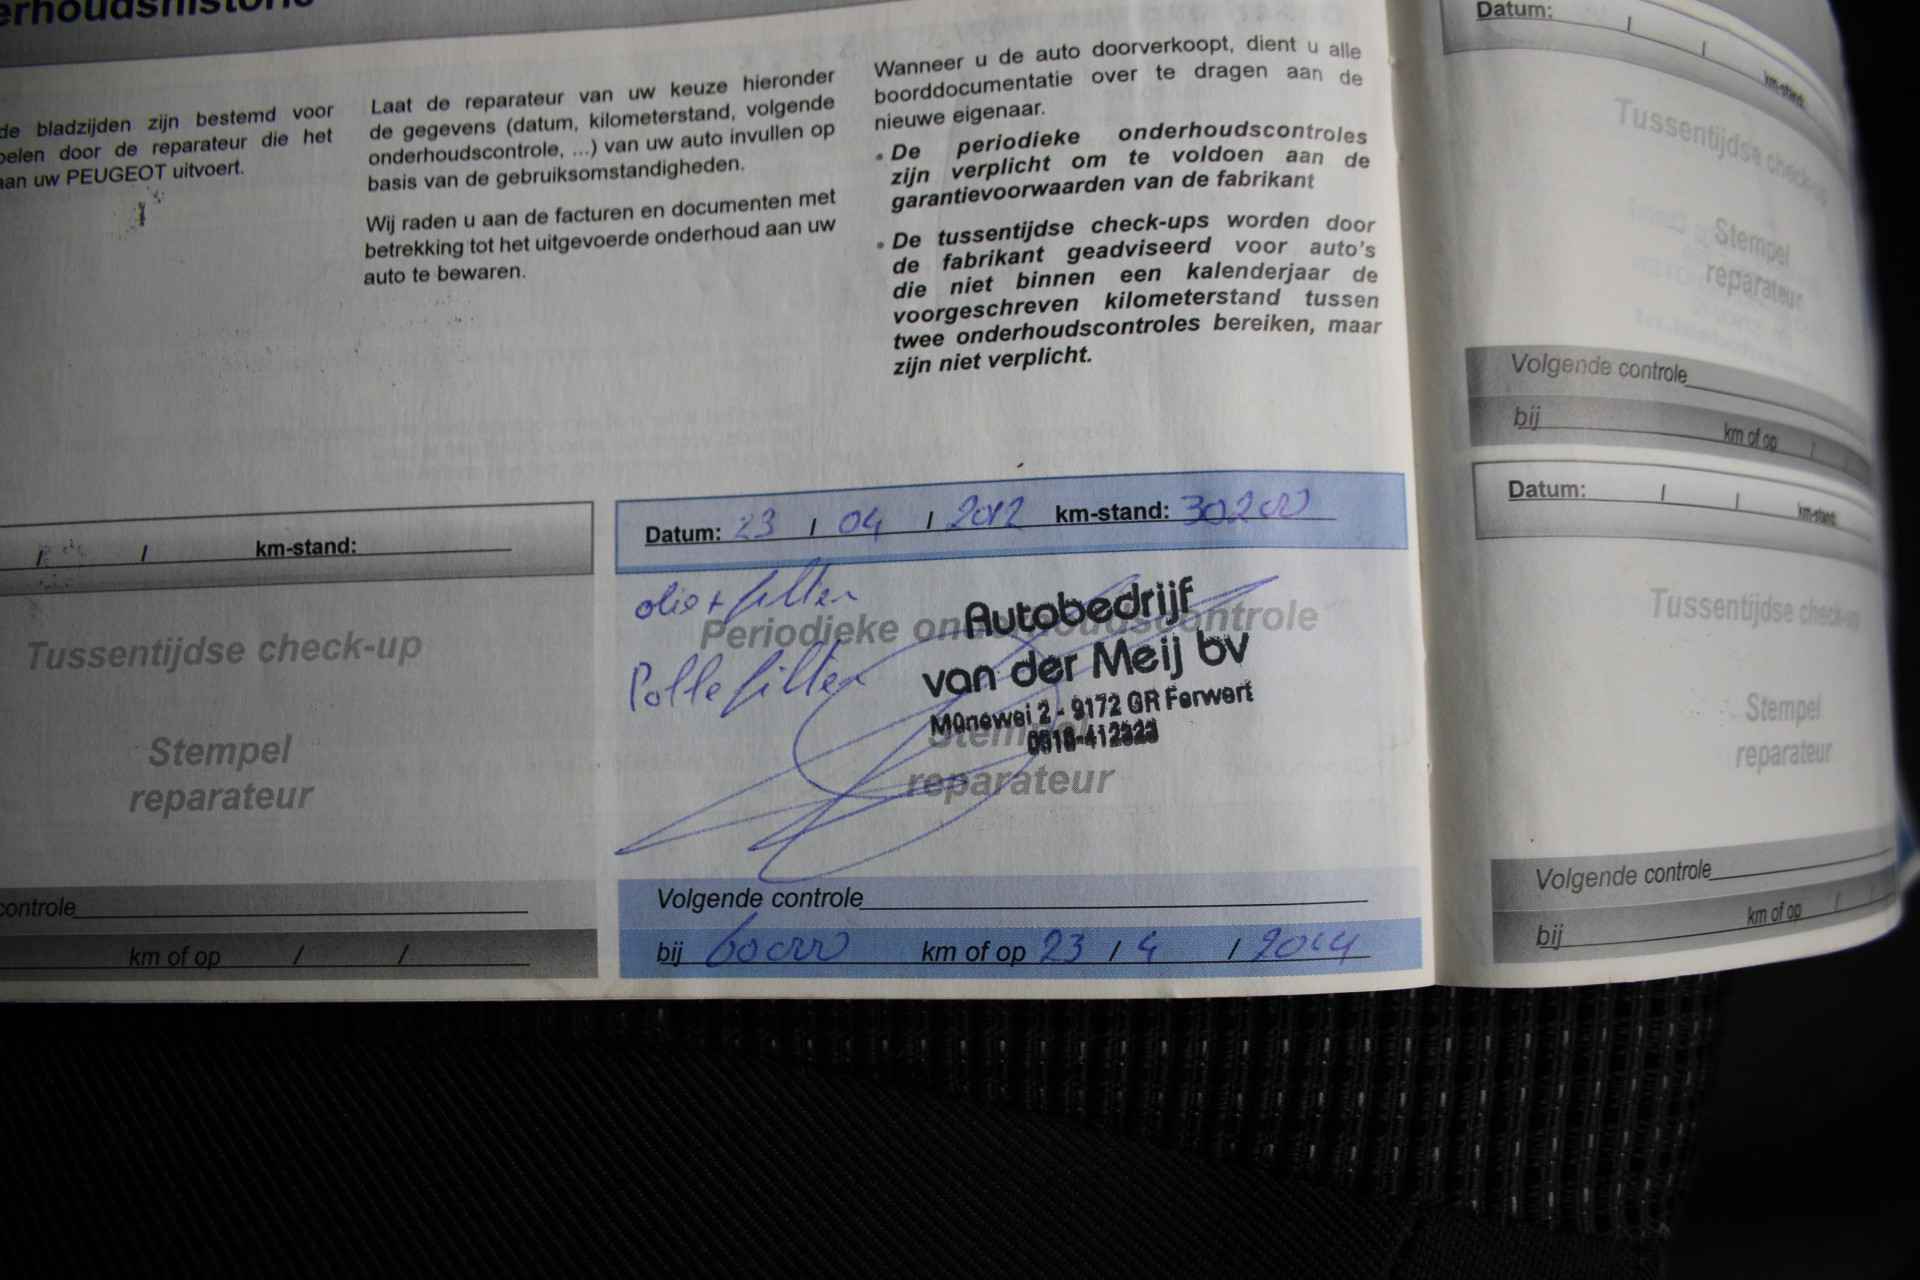 erhoudshistorie
de bladzijden zijn bestemd voor
pelen door de reparateur die het
aan uw PEUGEOT uitvoert.
Laat de reparateur van uw keuze hieronder
de gegevens (datum, kilometerstand, volgende
onderhoudscontrole, ...) van uw auto invullen op
basis van de gebruiksomstandigheden.
Wij raden u aan de facturen en documenten met
betrekking tot het uitgevoerde onderhoud aan uw
auto te bewaren.
Wanneer u de auto doorverkoopt, dient u alle
boorddocumentatie over te dragen aan de
nieuwe eigenaar.
• De periodieke onderhoudscontroles
zijn verplicht om te voldoen aan de
garantievoorwaarden van de fabrikant
• De tussentijdse check-ups worden door
de fabrikant geadviseerd voor auto's
die niet binnen een kalenderjaar de
voorgeschreven kilometerstand tussen
twee onderhoudscontroles bereiken, maar
zijn niet verplicht.
/ / km-stand:
Tussentijdse check-up
Stempel
reparateur
controle
km of op / /
Datum: 23 / 04 / 2012 km-stand: 30200
olie + filter
Periodieke onderhoudscontrole
Pollefilter
Autobedrijf
van der Meij bv
Mûnewei 2 - 9172 GR Ferwert
Stempel
reparateur
Volgende controle
bij 60000 km of op 23 / 4 / 2014
Datum: / / km-stand:
Tussentijdse check-up
Stempel
reparateur
Volgende controle
bij km of op /
Datum: / / km-stand:
Tussentijdse check-up
Stempel
reparateur
Volgende controle
bij km of op / /